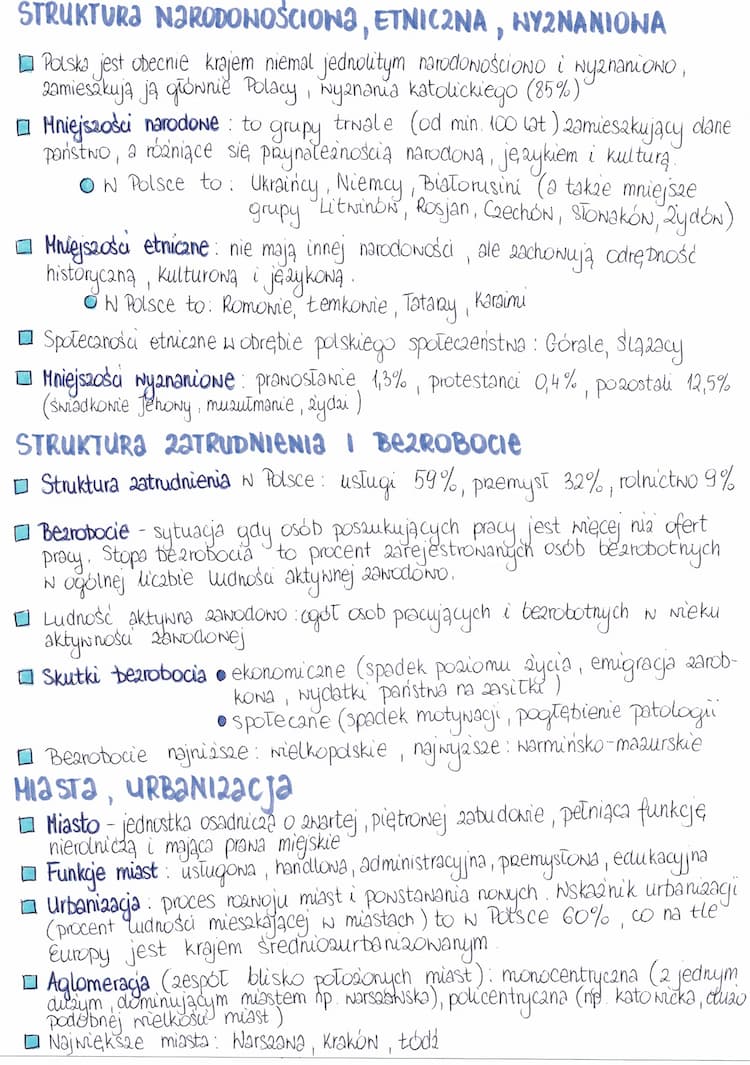 STRUKTURA NARODOWOŚCIOWA, ETNICZNA, WYZNANIOWA
Polska jest obecnie krajem niemal jednolitym narodowościowo i wyznaniowo,
zamieszkują ją głównie Polacy, wyznania katolickiego (85%)
Mniejszości narodowe : to grupy trwale (od min. 100 lat) zamieszkujący dane
państwo, a różniące się przynależnością narodową, językiem i kulturą.
W Polsce to : Ukraińcy, Niemcy, Białorusini (a także mniejsze
grupy Litwinów, Rosjan, Czechów, Słowaków, Żydów)
Mniejszości etniczne : nie mają innej narodowości, ale zachowują odrębność
historyczną, kulturową i językową.
W Polsce to : Romowie, Łemkowie, Tatarzy, Karaimi
Społeczności etniczne w obrębie polskiego społeczeństwa : Górale, Ślązacy
Mniejszości wyznaniowe : prawosławie 1,3%, protestanci 0,4%, pozostali 12,5%
(świadkowie Jehowy, muzułmanie, żydzi)
STRUKTURA ZATRUDNIENIA I BEZROBOCIE
Struktura zatrudnienia w Polsce : usługi 59%, przemysł 32%, rolnictwo 9%
Bezrobocie - sytuacja gdy osób poszukujących pracy jest więcej niż ofert
pracy. Stopa bezrobocia to procent zarejestrowanych osób bezrobotnych
w ogólnej liczbie ludności aktywnej zawodowo.
Ludność aktywna zawodowo : ogół osób pracujących i bezrobotnych w wieku
aktywności zawodowej
Skutki bezrobocia • ekonomiczne (spadek poziomu życia, emigracja zarob-
kowa, wydatki państwa na zasiłki)
• społeczne (spadek motywacji, pogłębienie patologii
Bezrobocie najniższe : wielkopolskie, najwyższe : warmińsko-mazurskie
MIASTA, URBANIZACJA
Miasto - jednostka osadnicza o zwartej, piętrowej zabudowie, pełniąca funkcję
nierolniczą i mająca prawa miejskie
Funkcje miast : usługowa, handlowa, administracyjna, przemysłowa, edukacyjna
Urbanizacja : proces rozwoju miast i powstawania nowych. Wskaźnik urbanizacji
(procent ludności mieszkającej w miastach) to w Polsce 60%, co na tle
Europy jest krajem średniozurbanizowanym.
Aglomeracja (zespół blisko położonych miast) : monocentryczna (z jednym
dużym, dominującym miastem np. warszawska), policentryczna (np. katowicka, dużo
podobnej wielkości miast)
Największe miasta : Warszawa, Kraków, Łódź